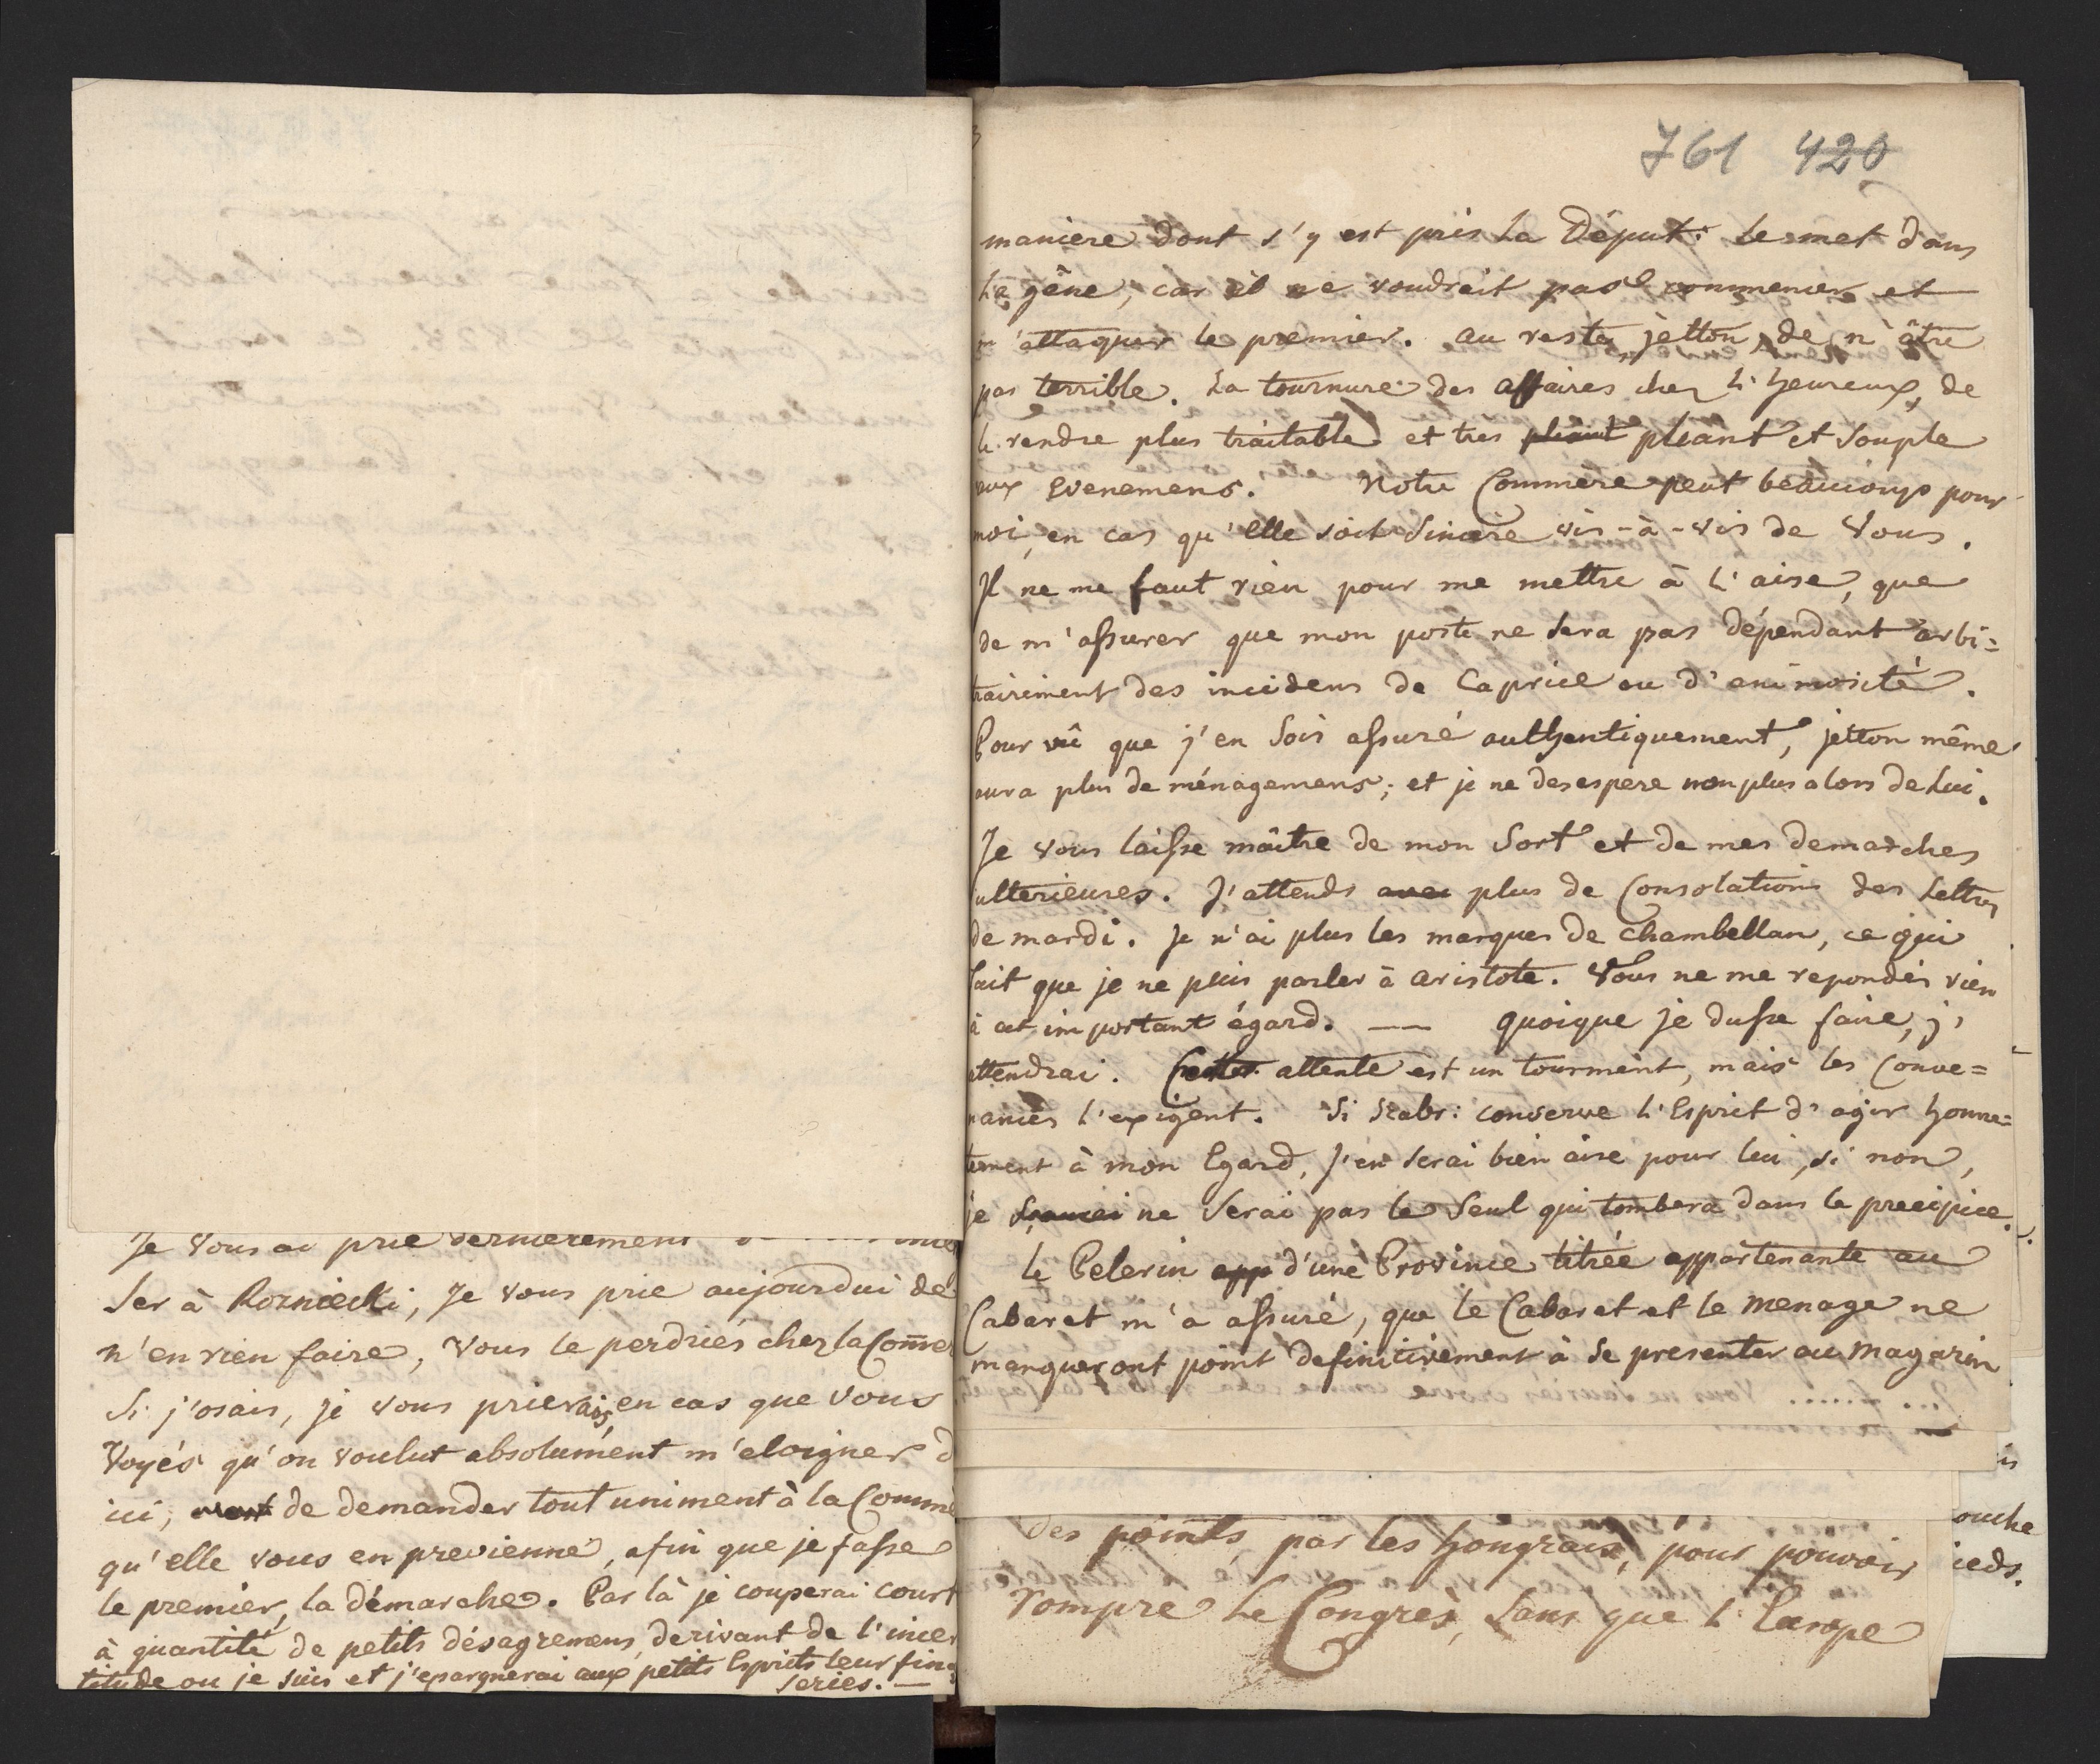 Je vous ai prié dernierement
ser à Rozniecki, Je vous prie aujourdui de
n'en rien faire, vous le perdriés chez la Com̄e
Si j'osais, je vous prierais, en cas que vous
Voyés qu'on voulut absolument m'eloigner d
ici, de demander tout uniment à la Commè
qu'elle vous en previenne, afin que je fasse
le premier, la démarche. Par là je couperai court
à quantité de petits désagremens, derivant de l'incer
titude ou je suis et j'epargnerai aux petits Esprits leur fine
series. —
761 420
maniere dont s'y est pris La Déput: le met dans
la gêne, car il ne voudrait pas commencer et
m'attaquer le premier. au reste jetton de n'être
pas terrible. La tournure des affaires chez L'heureux, de
le rendre plus traitable et tres pliant pliant et souple
aux evenemens. Notre Commère peut beaucoup pour
moi, en cas qu'elle soit Sincère vis-à-vis de Vous.
Il ne me faut rien pour me mettre à l'aise, que
de m'assurer que mon poste ne sera pas dépendant arbi=
trairement des incidens de Caprice ou d'animosité.
Pour vû que j'en Sois assuré authentiquement, jetton même
aura plus de ménagemens; et je ne desespere non plus alors de Lui.
Je vous laisse maître de mon Sort et de mes demarches
ulterieures. J'attends avec plus de Consolations des Lettres
de mardi. Je n'ai plus les marques de Chambellan, ce qui
fait que je ne puis parler à Aristote. Vous ne me repondés rien
à cet important égard. —— quoique je dusse faire, j'
attendrai. Cette attente est un tourment, mais les Conve=
nances l'exigent. Si Szabr: conserve l'Esprit d'agir honne=
tement à mon Egard, j'en serai bien aise pour lui, si non,
je ne Serai pas le Seul qui tombera dans le precipice.
Le Pelerin app d'une Province titrée appartenante au
Cabaret m'a assuré, que le Cabaret et le menage ne
manqueront point definitivement à se presenter au magazin
des points, par les hongrais, pour pouvoir
rompre le Congrès, Sans que l'Europe
ouche
ieds.